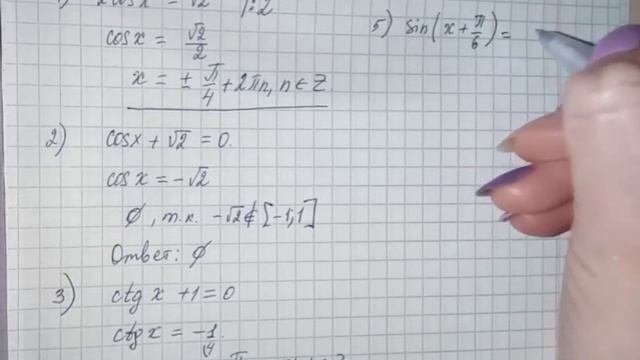 2cosx = √2 |:2
cosx = √2/2
x = ± π/4 + 2πn, n ∈ Z
2) cosx + √2 = 0.
cosx = -√2
∅, т.к. -√2 ∉ [-1, 1]
Ответ: ∅
3) ctg x + 1 = 0
ctg x = -1.
5) sin(x + π/6) =